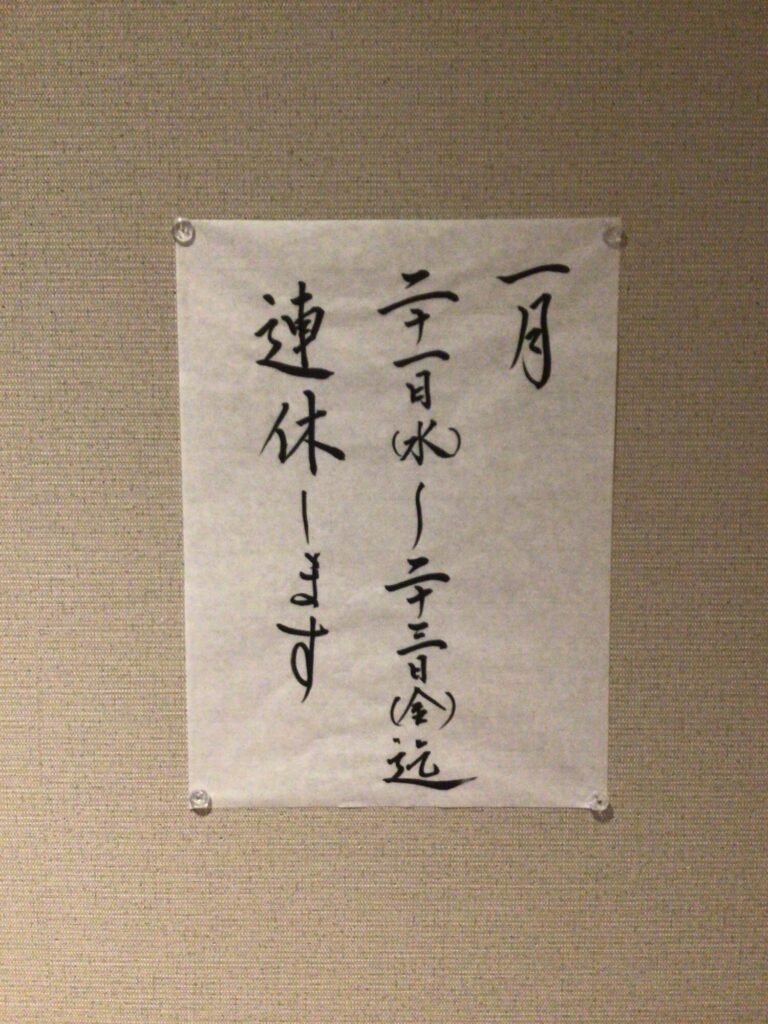 一月
二十一日(水)〜二十三日(金)迄
連休します